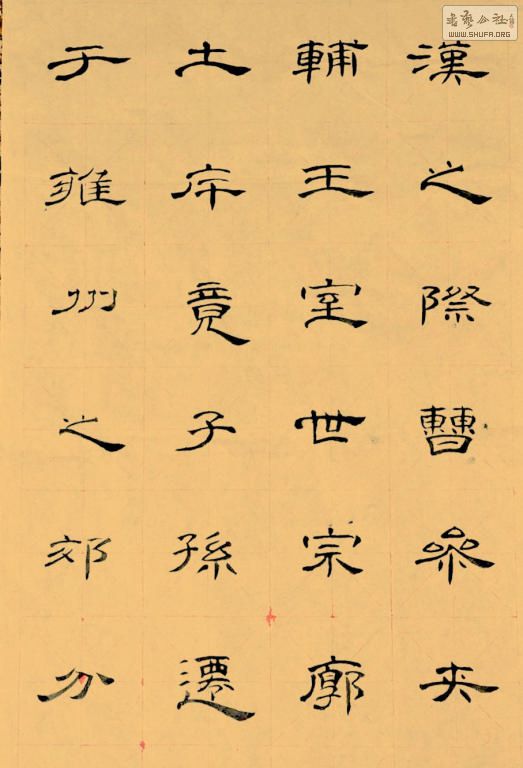 漢之際曹參夾
輔王室世宗廓
土斥竟子孫遷
于雍州之郊分
书艺公社
WWW.SHUFA.ORG